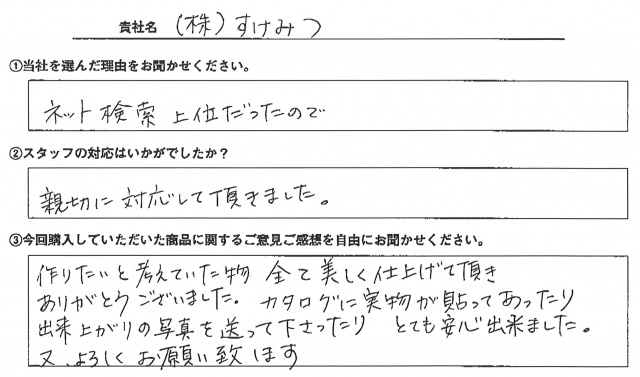 貴社名 (株)すけみつ
①当社を選んだ理由をお聞かせください。
ネット検索 上位だったので
②スタッフの対応はいかがでしたか？
親切に対応して頂きました。
③今回購入していただいた商品に関するご意見ご感想を自由にお聞かせください。
作りたいと考えていた物 全て美しく仕上げて頂き
ありがとうございました。カタログに実物が貼ってあったり
出来上がりの写真を送って下さったり とても安心出来ました。
又、よろしくお願い致します